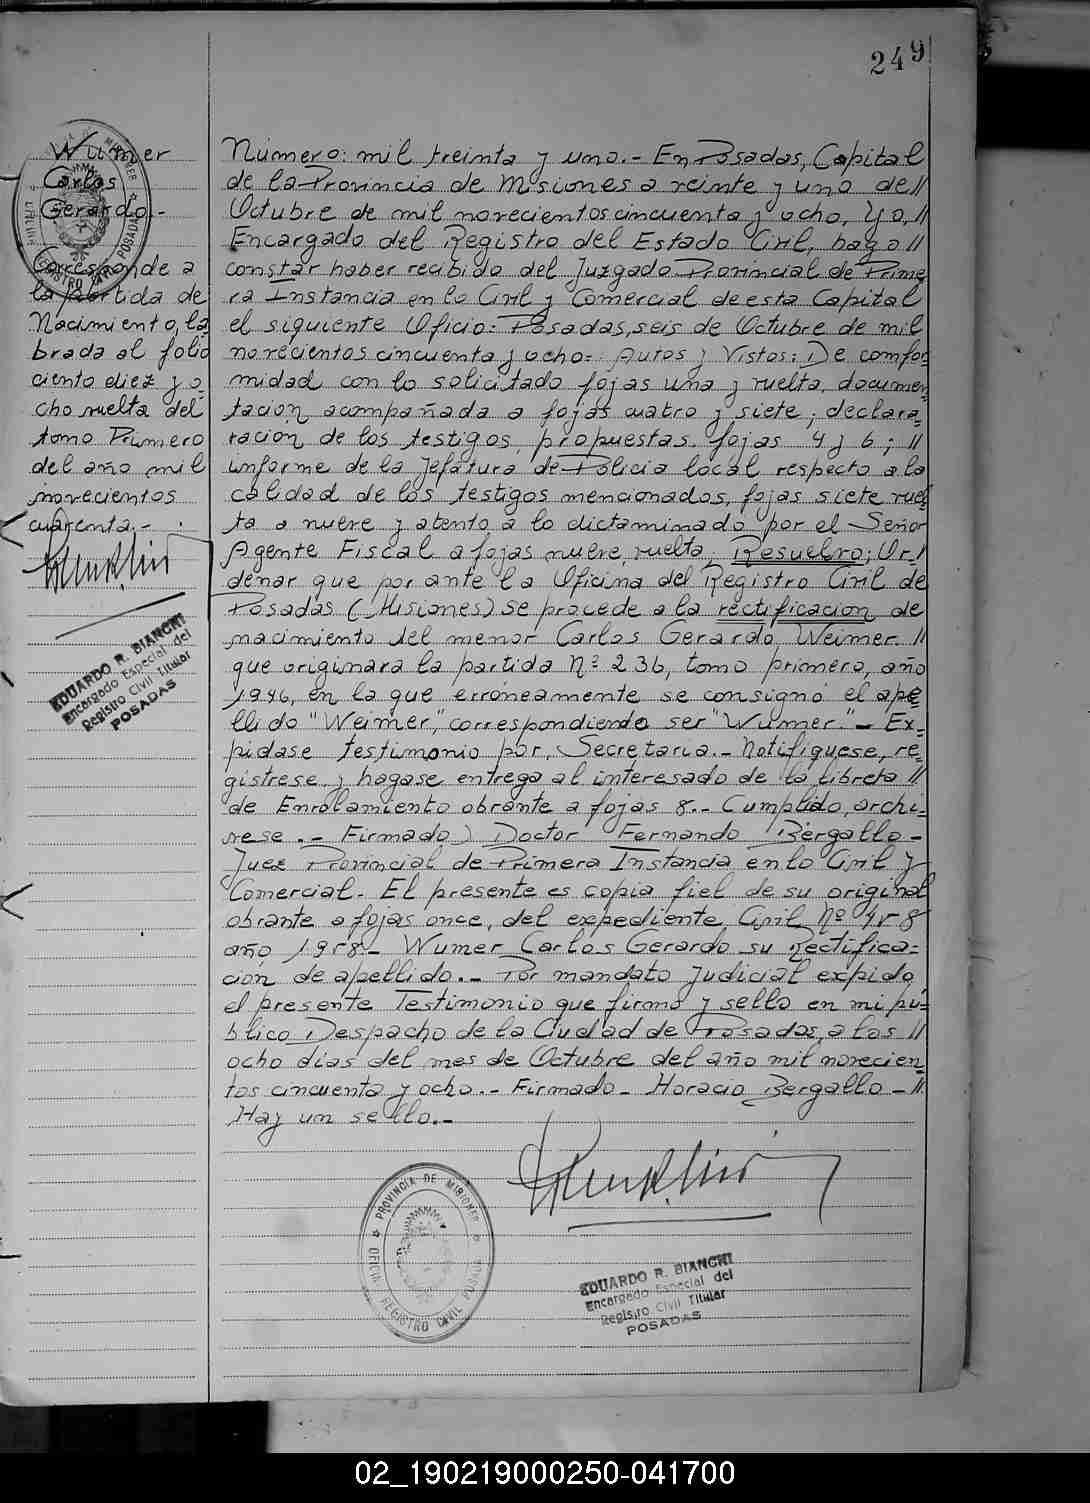 249
Wumer
Carlos
Gerardo.-
Corresponde a
la partida de
Nacimiento, la
brada al folio
ciento diez y o-
cho vuelta del
tomo Primero
del año mil
novecientos
cuarenta.-
EDUARDO R. BIANCHI
Encargado Especial del
Registro Civil Titular
POSADAS
Número: mil treinta y uno.- En Posadas, Capital
de la Provincia de Misiones a veinte y uno de//
Octubre de mil novecientos cincuenta y ocho, Yo,//
Encargado del Registro del Estado Civil, hago//
constar haber recibido del Juzgado Provincial de Prime
ra Instancia en lo Civil y Comercial de esta Capital
el siguiente Oficio: Posadas, seis de Octubre de mil
novecientos cincuenta y ocho.- Autos y Vistos: De confor-
midad con lo solicitado fojas una y vuelta, documen
tación acompañada a fojas cuatro y siete; declara-
ración de los testigos propuestas fojas 4 y 6; //
informe de la Jefatura de Policia local respecto a la
calidad de los testigos mencionados, fojas siete vuel
ta a nueve y atento a lo dictaminado por el Señor
Agente Fiscal a fojas nueve, vuelta, Resuelvo: Or/
denar que por ante la Oficina del Registro Civil de
Posadas (Misiones) se procede a la rectificacion de
nacimiento del menor Carlos Gerardo Weimer.//
que originara la partida Nº 236, tomo primero, año
1946, en la que erróneamente se consignó el ape
llido "Weimer," correspondiendo ser "Wumer."- Ex-
pidase testimonio por Secretaria.- Notifiquese, re-
gistrese y hagase entrega al interesado de la libreta//
de Enrolamiento obrante a fojas 8.- Cumplido, archi-
vese.- Firmado) Doctor Fernando Bergallo-
Juez Provincial de Primera Instancia en lo Civil y
Comercial- El presente es copia fiel de su original
obrante a fojas once, del expediente Civil Nº 458
año 1958- Wumer Carlos Gerardo su Rectifica-
ción de apellido.- Por mandato judicial expido
el presente Testimonio que firmo y sello en mi pú-
blico Despacho de la Ciudad de Posadas, a los//
ocho días del mes de Octubre del año mil novecien-
tos cincuenta y ocho.- Firmado- Horacio Bergallo-//
Hay un sello.-
PROVINCIA DE MISIONES
OFICINA REGISTRO CIVIL POSADAS
EDUARDO R. BIANCHI
Encargado Especial del
Registro Civil Titular
POSADAS
02_190219000250-041700